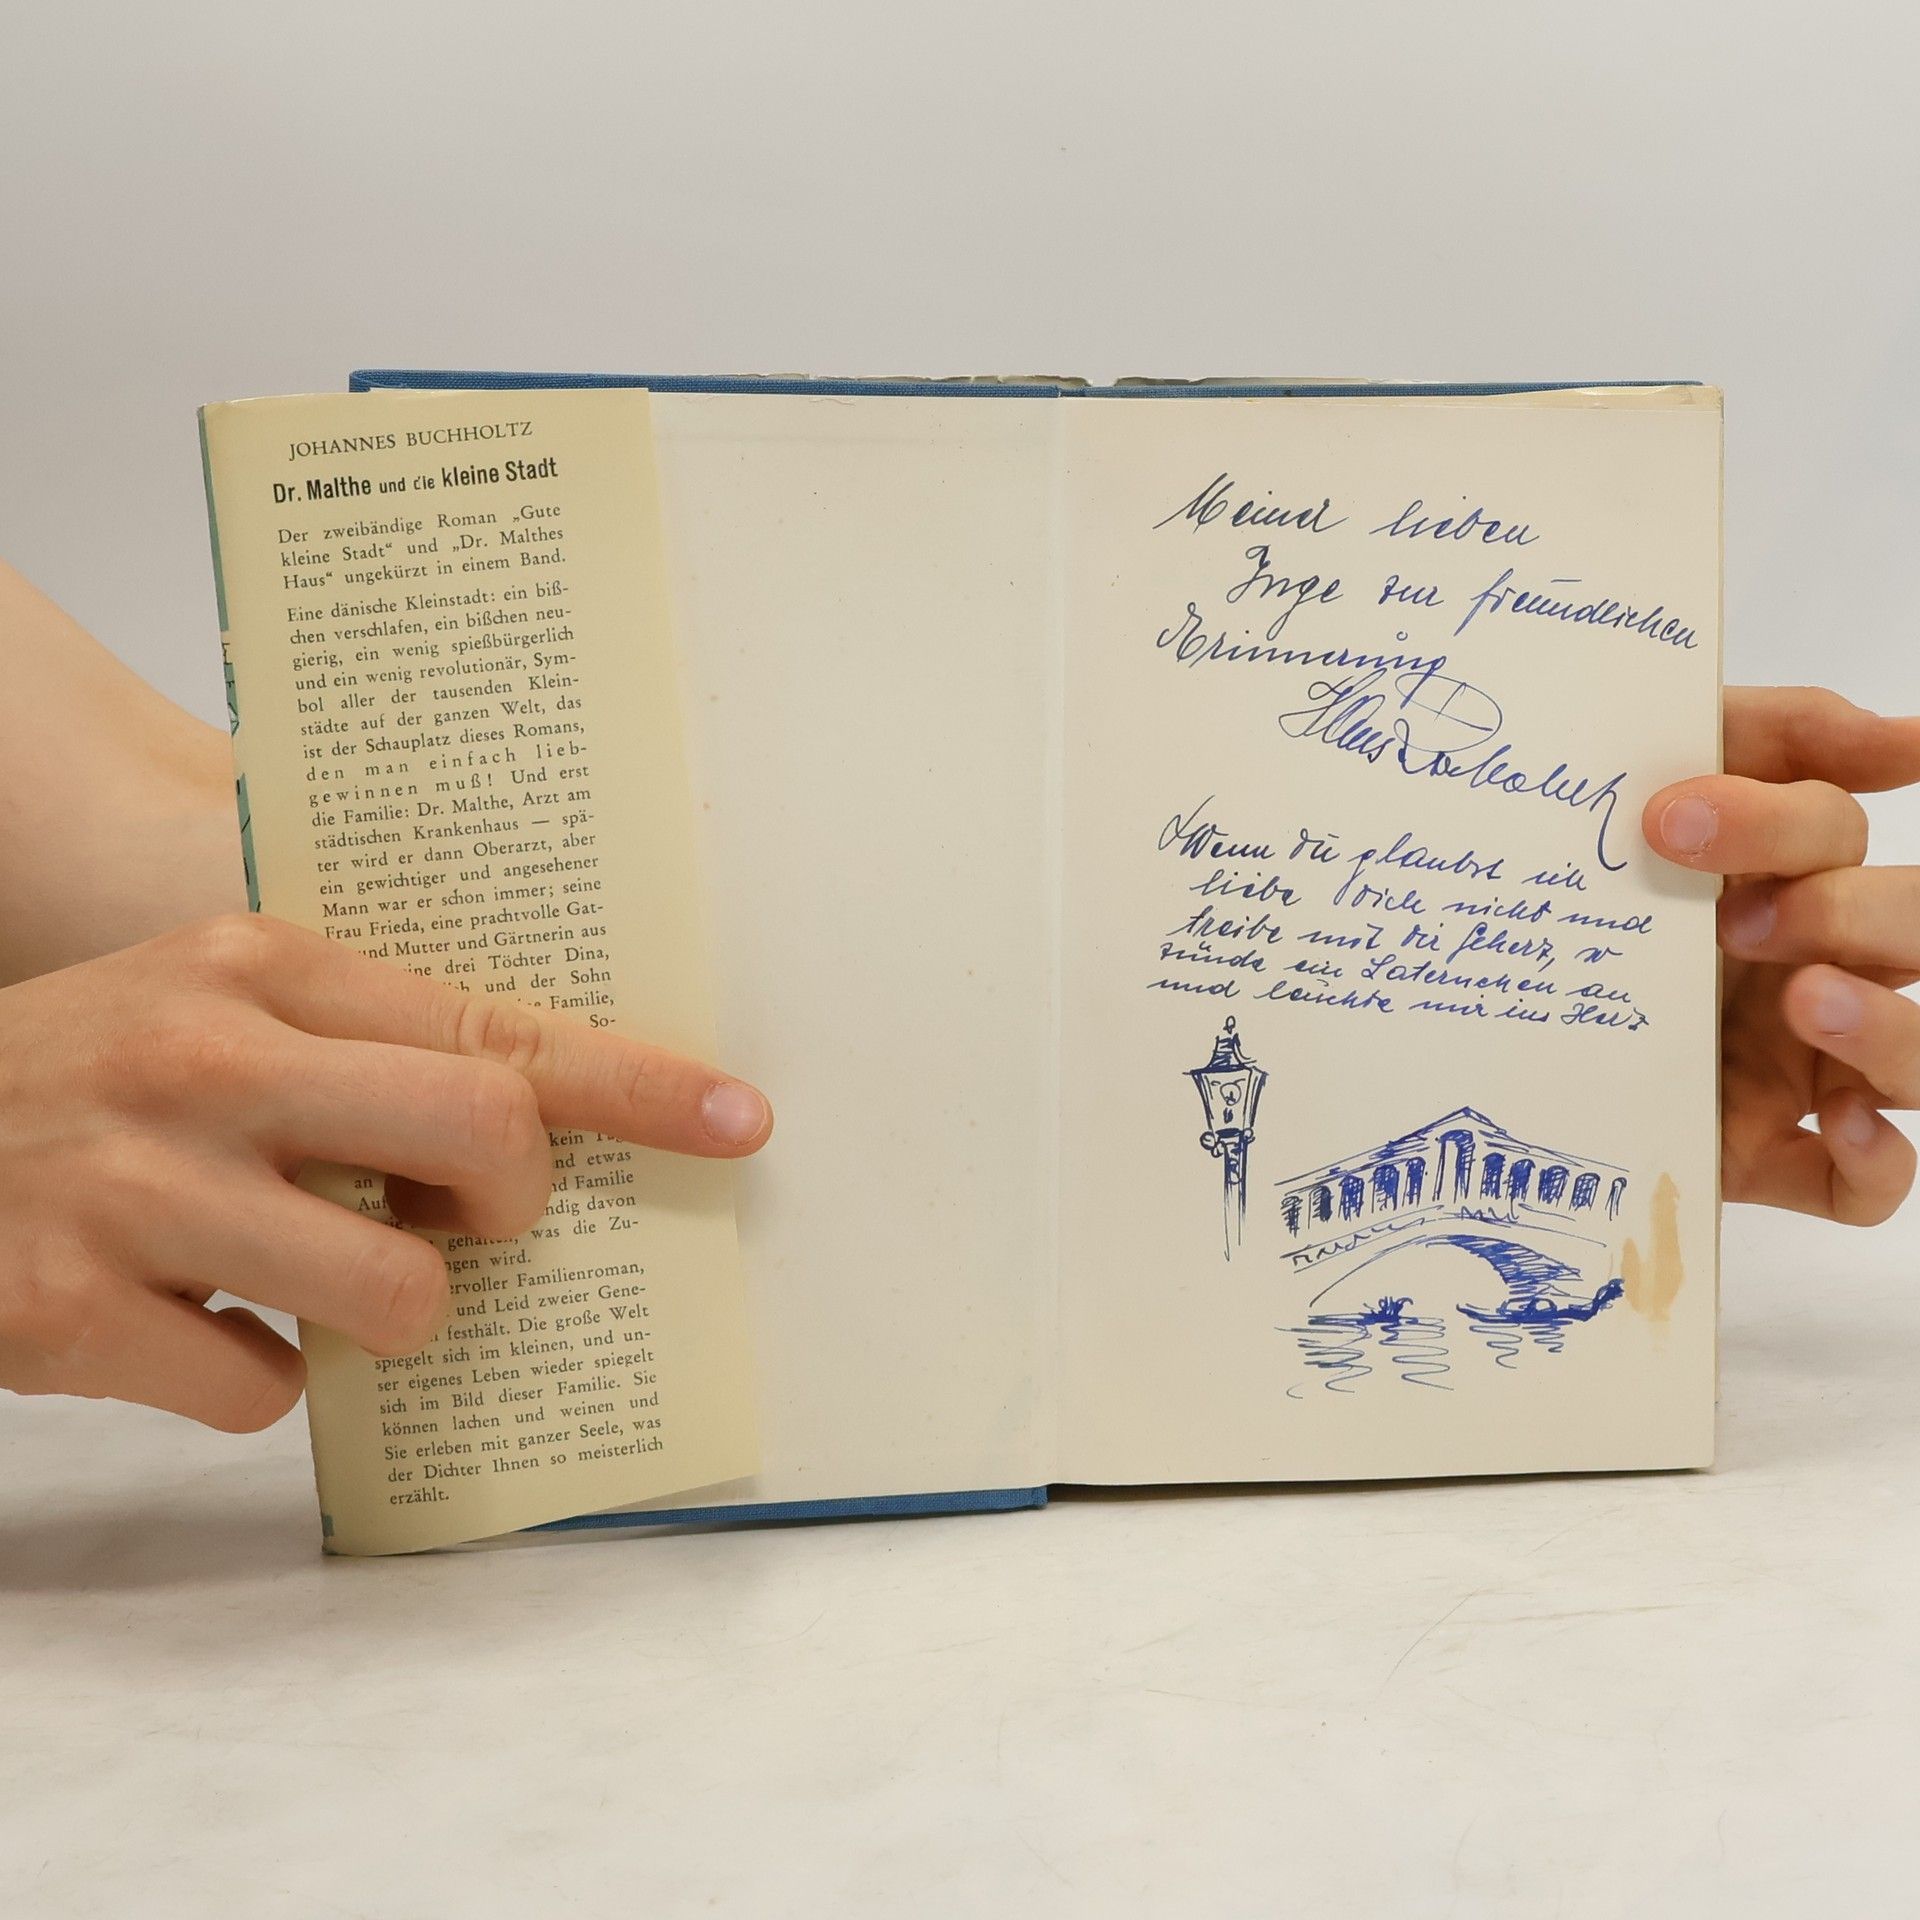 JOHANNES BUCHHOLTZ
Dr. Malthe und die kleine Stadt
Der zweibändige Roman „Gute
kleine Stadt“ und „Dr. Malthes
Haus“ ungekürzt in einem Band.
Eine dänische Kleinstadt: ein biß-
chen verschlafen, ein bißchen neu-
gierig, ein wenig spießbürgerlich
und ein wenig revolutionär, Sym-
bol aller der tausenden Klein-
städte auf der ganzen Welt, das
ist der Schauplatz dieses Romans,
den man einfach lieb-
gewinnen muß! Und erst
die Familie: Dr. Malthe, Arzt am
städtischen Krankenhaus — spä-
ter wird er dann Oberarzt, aber
ein gewichtiger und angesehener
Mann war er schon immer; seine
Frau Frieda, eine prachtvolle Gat-
und Mutter und Gärtnerin aus
drei Töchter Dina,
und der Sohn
Familie,
So-
kein
etwas
an Familie
davon
was die Zu-
wird.
Familienroman,
und Leid zweier Gene-
festhält. Die große Welt
spiegelt sich im kleinen, und un-
ser eigenes Leben wieder spiegelt
sich im Bild dieser Familie. Sie
können lachen und weinen und
Sie erleben mit ganzer Seele, was
der Dichter Ihnen so meisterlich
erzählt.
Meiner lieben
Inge zur freundlichen
Erinnerung
Wenn du glaubst ich
liebe Dich nicht und
treibe mit dir Scherz, so
zünde ein Laternchen an
und leuchte mir ins Herz